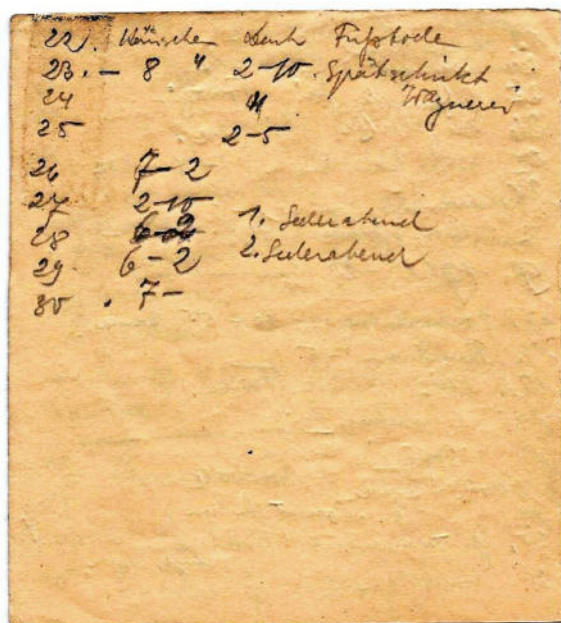 22. Häuschen Dach Fußbode
23. – 8 " 2–10. Spätschicht
24 " Wagnerei
25 2–5
26 7–2
27 2–10
28 1. Sederabend
29 6–2 2. Sederabend
30 . 7–